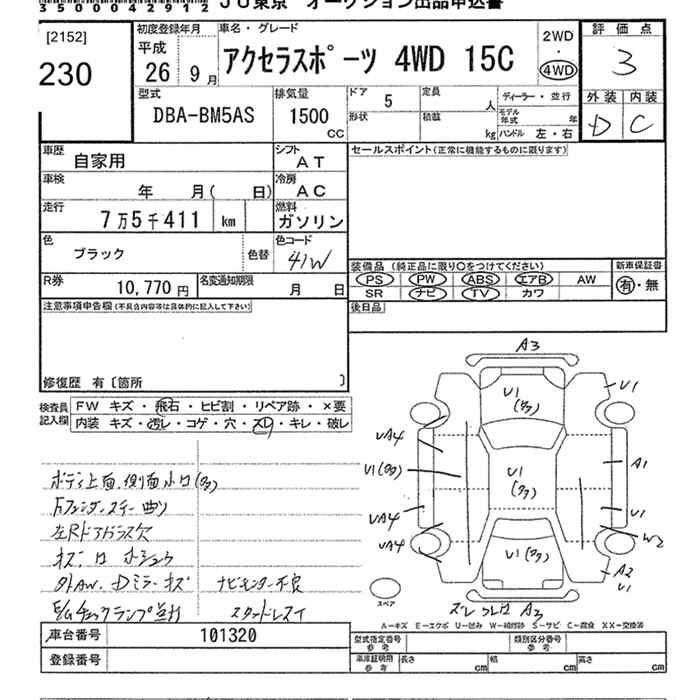 35004291 2
JU東京 オークション出品申込書
[2152]
230
初度登録年月
平成
26年9月
車名・グレード
アクセラスポーツ 4WD 15C
2WD
・
4WD
評価点
3
外装 内装
D C
型式
DBA-BM5AS
排気量
1500
CC
ドア 5
定員 人
形状
積載 kg
ディーラー・並行
モデル年式 年
ハンドル 左・右
車歴
自家用
シフト
AT
車検
年 月( 日)
冷房
AC
走行
7万5千411 km
燃料
ガソリン
色
ブラック
色替
色コード
41W
R券
10,770円
名変通知期限
月 日
セールスポイント(正常に機能するものに限ります)
装備品(純正品に限り○をつけてください)
PS PW ABS エアB AW
SR ナビ TV カワ
新車保証書
有・無
後日品
注意事項申告欄(不具合内容等は具体的に記入して下さい)
修復歴 有〔箇所 〕
検査員記入欄
FW キズ・飛石・ヒビ割・リペア跡・×要
内装 キズ・汚レ・コゲ・穴・スレ・キレ・破レ
ボディ上面、側面小凹(多)
左Rドアガラス欠
ナビモニター不良
スタッドレスイ
A3
U1
(多)
U1
UA4
U1(多)
U1
(タタ)
A1
UA4
U1
W2
UA4
U1(多)
A2
U1
A3
スペア
A=キズ E=エクボ U=凹み W=補修跡 S=サビ C=腐食 XX=交換済
車台番号 101320
登録番号
型式指定番号
参考
類別区分番号
参考
車庫証明用
参考
長さ cm 幅 cm 高さ cm